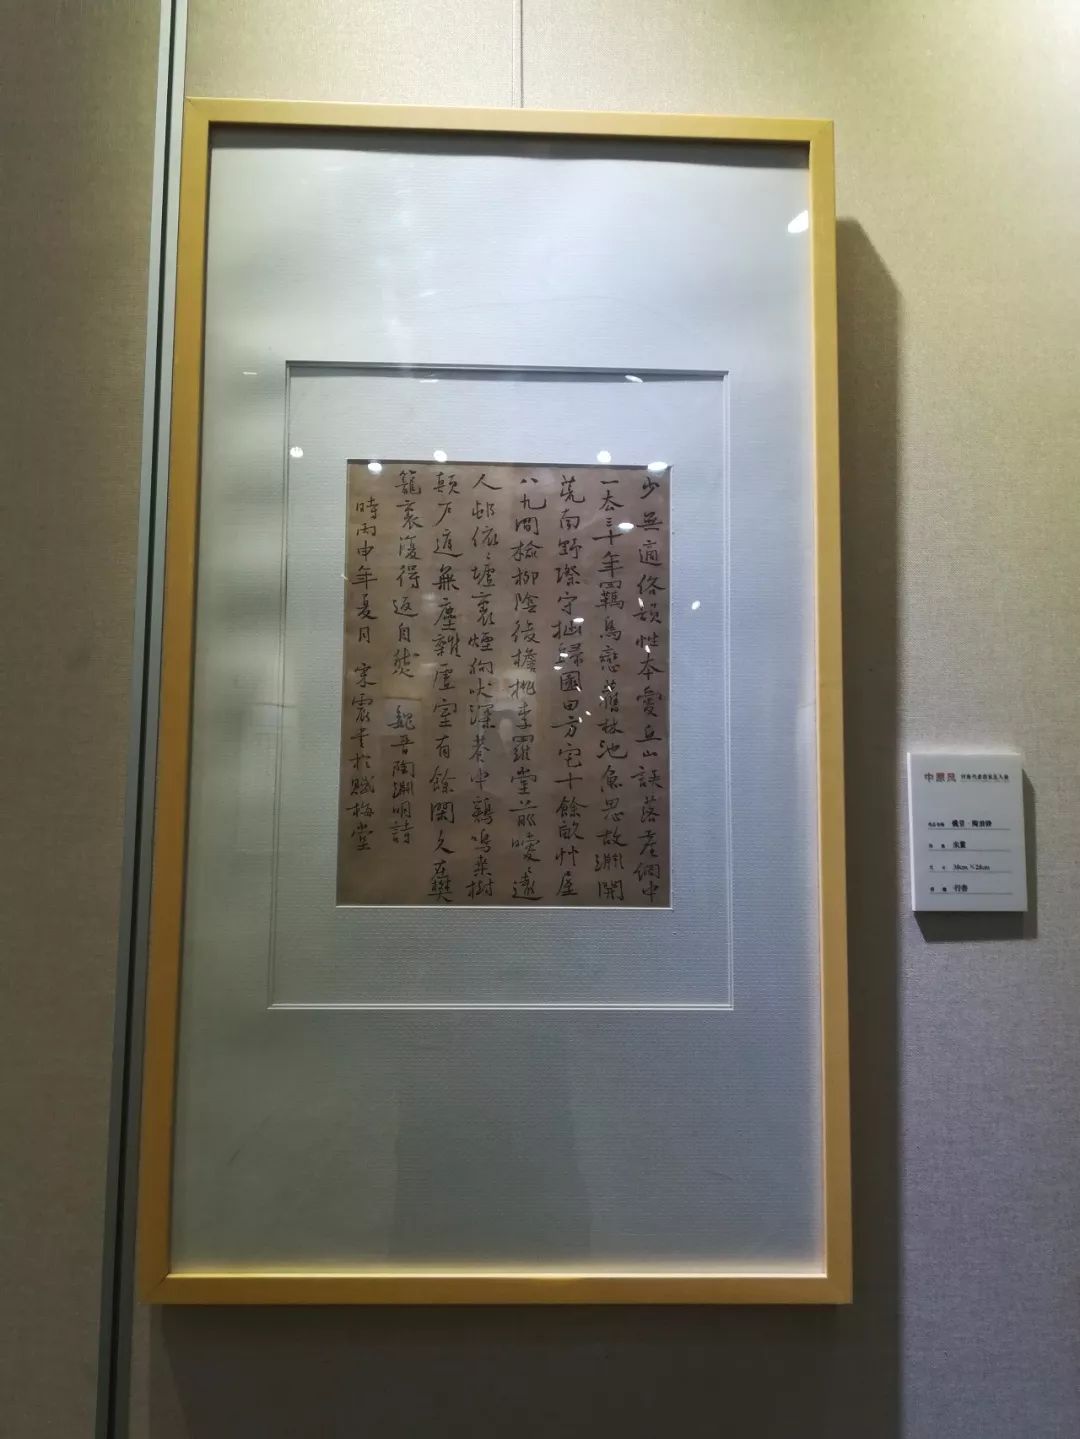 少無適俗韻性本愛丘山誤落塵網中
一去三十年羈鳥戀舊林池魚思故淵開
荒南野際守拙歸園田方宅十餘畝艸屋
八九間榆柳陰後檐桃李羅堂前曖〻遠
人邨依〻墟裏煙狗吠深巷中雞鳴桑樹
顛戶庭無塵雜虛室有餘閑久在樊
籠裏復得返自然 魏晉陶淵明詩
時丙申年夏月 宋震書於賦梅堂
中原风
38cm×28cm
行书